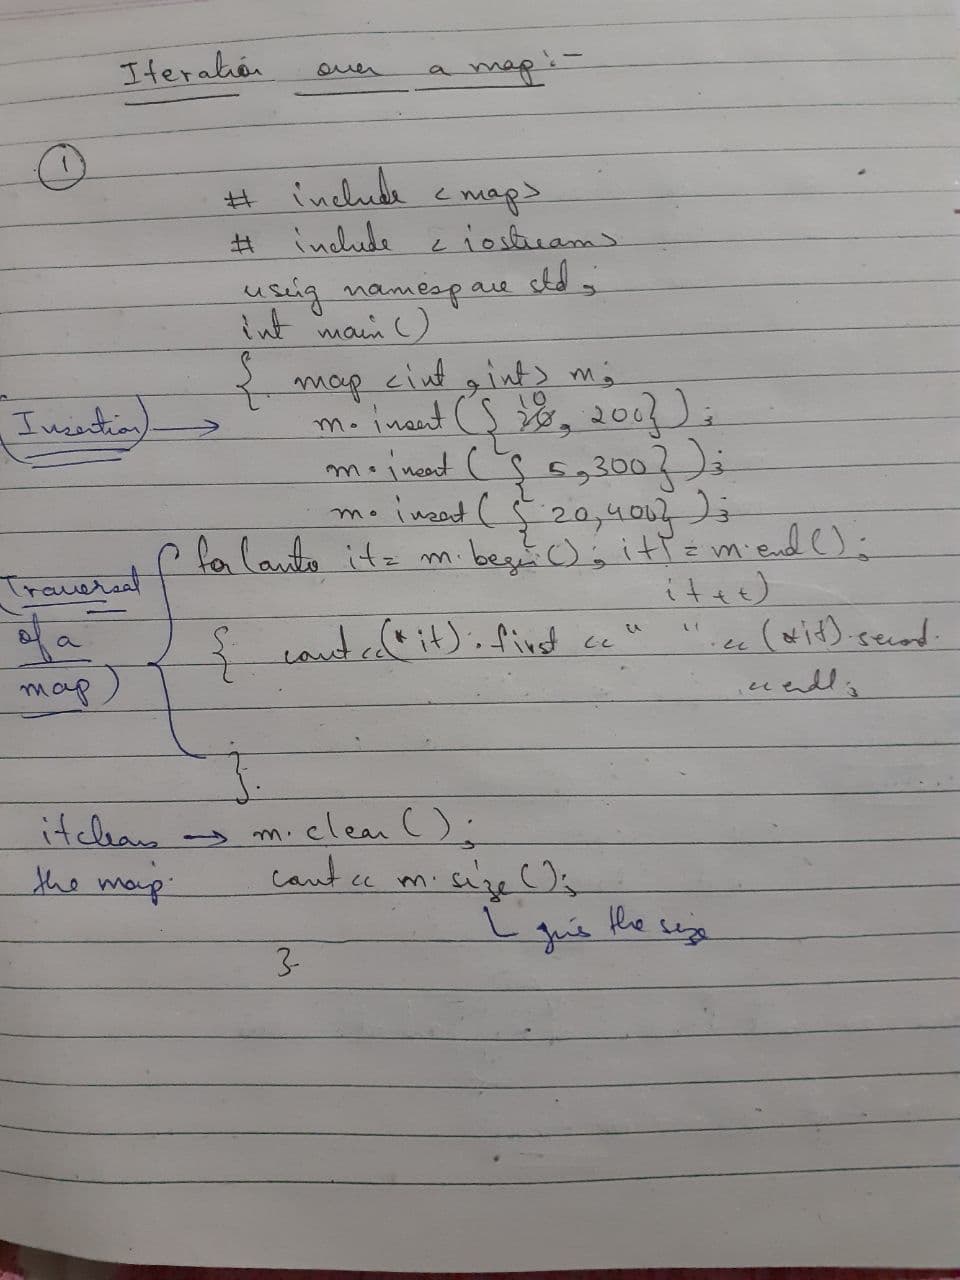 Iteration over a map :-
①
# include <map>
# include <iostream>
using namespace std;
int main()
{ map <int, int> m;
(Insertion) → m.insert({10, 200});
m.insert({5,300});
m.insert({20,400});
(Traversal of a map) for(auto it= m.begin(); it!=m.end();
it++)
{ cout<<(*it).first <<" " <<(*it).second
<<endl;
}.
it clears → m.clear();
the map. cout << m.size();
gives the size
}